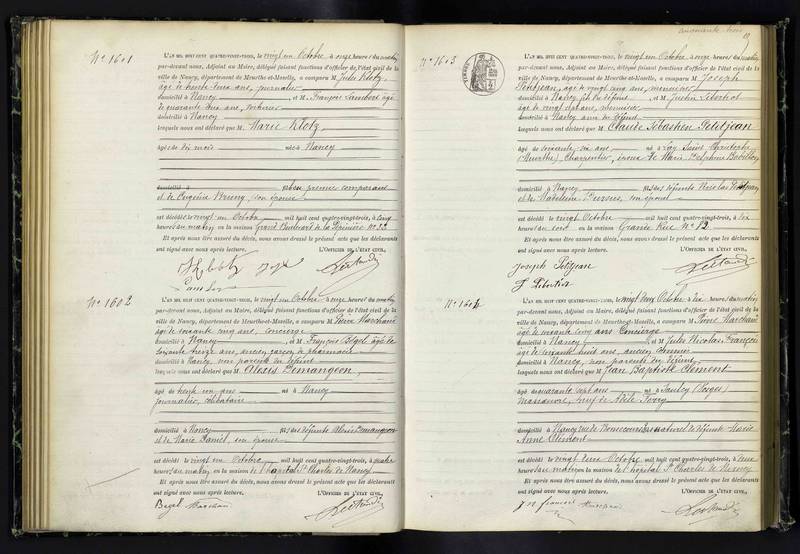 Nº 1601
L'AN MIL HUIT CENT QUATRE-VINGT-TROIS, le vingt un Octobre à onze heures du matin
par-devant nous, Adjoint au Maire, délégué faisant fonctions d'officier de l'état civil de la
ville de Nancy, département de Meurthe-et-Moselle, a comparu M. Jules Klotz,
âgé de trente trois ans, journalier
domicilié à Nancy et M. François Lambert âgé
de quarante deux ans,
domicilié à Nancy
lesquels nous ont déclaré que M. Marie Klotz
âgée de dix mois née à Nancy
domicilié à du premier comparant
et de Eugénie son épouse
est décédée le vingt un Octobre mil huit cent quatre-vingt-trois, à cinq
heures du matin, en la maison Grand Boulevard de la Pépinière Nº 33
Et après nous être assuré du décès, nous avons dressé le présent acte que les déclarants
ont signé avec nous après lecture. L'OFFICIER DE L'ÉTAT CIVIL,
Nº 1602
L'AN MIL HUIT CENT QUATRE-VINGT-TROIS, le vingt un Octobre à onze heures du matin
par-devant nous, Adjoint au Maire, délégué faisant fonctions d'officier de l'état civil de la
ville de Nancy, département de Meurthe-et-Moselle, a comparu M. Pierre Marchand
âgé de soixante cinq ans, concierge
domicilié à Nancy et M. François Bégel âgé de
soixante treize ans, ancien garçon de pharmacie
domicilié à Nancy, non parents du défunt
lesquels nous ont déclaré que M. Alexis Demangeon
âgé de trente un ans né à Nancy
journalier, célibataire
domicilié à Nancy fils des défunts Alexis Demangeon
et de Marie Daniel, son épouse
est décédé le vingt un Octobre mil huit cent quatre-vingt-trois, à quatre
heures du matin en la maison de l'hôpital St Charles de Nancy
Et après nous être assuré du décès, nous avons dressé le présent acte que les déclarants
ont signé avec nous après lecture. L'OFFICIER DE L'ÉTAT CIVIL,
Begel Marchand
Nº 1603
L'AN MIL HUIT CENT QUATRE-VINGT-TROIS, le vingt un Octobre à onze heures du matin
par-devant nous, Adjoint au Maire, délégué faisant fonctions d'officier de l'état civil de la
ville de Nancy, département de Meurthe-et-Moselle, a comparu M. Joseph
Petitjean, âgé de vingt cinq ans, menuisier
domicilié à Nancy, fils du défunt et M. Justin
âgé de vingt sept ans, menuisier
domicilié à Nancy du défunt
lesquels nous ont déclaré que M. Claude Sébastien Petitjean
âgé de soixante six ans né à Lay Saint Christophe
(Meurthe) Charpentier, époux de Marie Delphine
domicilié à Nancy fils des défunts Nicolas Petitjean
et de Madeleine son épouse
est décédé le vingt Octobre mil huit cent quatre-vingt-trois, à six
heures du soir en la maison Grande Rue Nº 12
Et après nous être assuré du décès, nous avons dressé le présent acte que les déclarants
ont signé avec nous après lecture. L'OFFICIER DE L'ÉTAT CIVIL,
Joseph Petitjean
Nº 1604
L'AN MIL HUIT CENT QUATRE-VINGT-TROIS, le vingt deux Octobre à dix heures du matin
par-devant nous, Adjoint au Maire, délégué faisant fonctions d'officier de l'état civil de la
ville de Nancy, département de Meurthe-et-Moselle, a comparu M. Pierre Marchand
âgé de soixante cinq ans Concierge
domicilié à Nancy et M. Jules Nicolas François
âgé de soixante huit ans, ancien commis
domicilié à Nancy, non parents du défunt
lesquels nous ont déclaré que M. Jean Baptiste Clément
âgé de quarante sept ans né à Saulxy (Vosges)
manoeuvre, veuf de Adèle Ferry
domicilié à Nancy rue de Bonsecours fils naturel de défunte Marie
Anne Clément
est décédé le vingt deux Octobre mil huit cent quatre-vingt-trois, à deux
heures du matin en la maison de l'hôpital St Charles de Nancy
Et après nous être assuré du décès, nous avons dressé le présent acte que les déclarants
ont signé avec nous après lecture. L'OFFICIER DE L'ÉTAT CIVIL,
J N françois Marchand